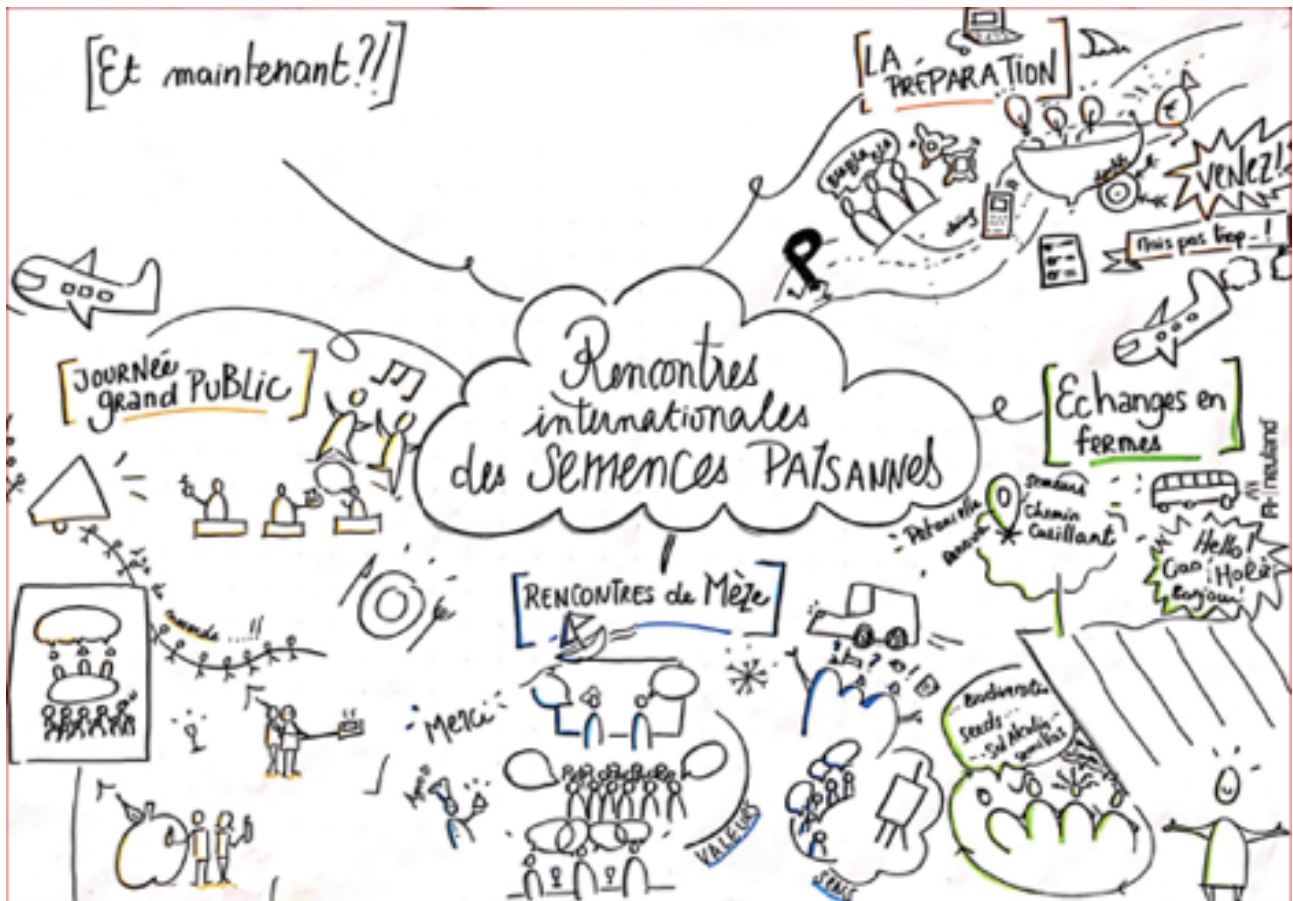 [Et maintenant?!]
[LA
PRÉPARATION]
BlaBlaBla
dring
€
VENEZ!!
Mais pas trop...!
P
[JOURNÉE
grand PUBLIC]
Rencontres
internationales
des SEMENCES PAYSANNES
[Echanges en
fermes]
semeurs
Chemin
Cueillant
Hello!
Ciao
Hola
Bonjour!
monde...!!
[RENCONTRES de Mèze]
Merci
VALEURS
SENS
Biodiversità
seeds...
semillas